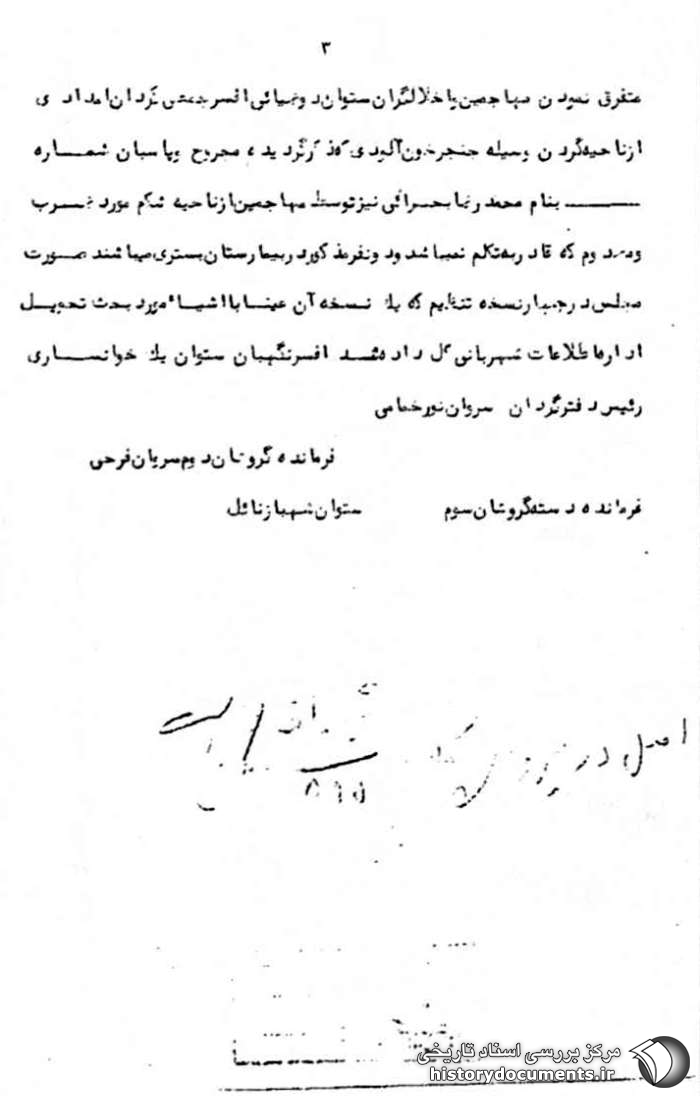 ۳
متفرق نمودن مهاجمین واخلالگران ستوان دوم ضیائی افسر جمعی گردان امدادی
ازناحیه گردن وسیله خنجر خون آلودی که ذکر گردیده مجروح وپاسبان شماره
بنام محمد رضا بحرائی نیز توسط مهاجمین ازناحیه شکم مورد ضرب
ومصدوم که قادر به تکلم نمیباشد ودونفر مذکور در بیمارستان بستری میباشند صورت
مجلس در چهار نسخه تنظیم که یک نسخه آن عینا با اشیاء مورد بحث تحویل
اداره اطلاعات شهربانی کل داده شد افسر نگهبان ستوان یک خوانساری
رئیس دفتر گردان سروان نورخمامی
فرمانده گروهان دوم سروان فرحی
فرمانده دسته گروهان سوم ستوان شهباز نائل
اصل در پرونده
مرکز بررسی اسناد تاریخی
historydocuments.ir